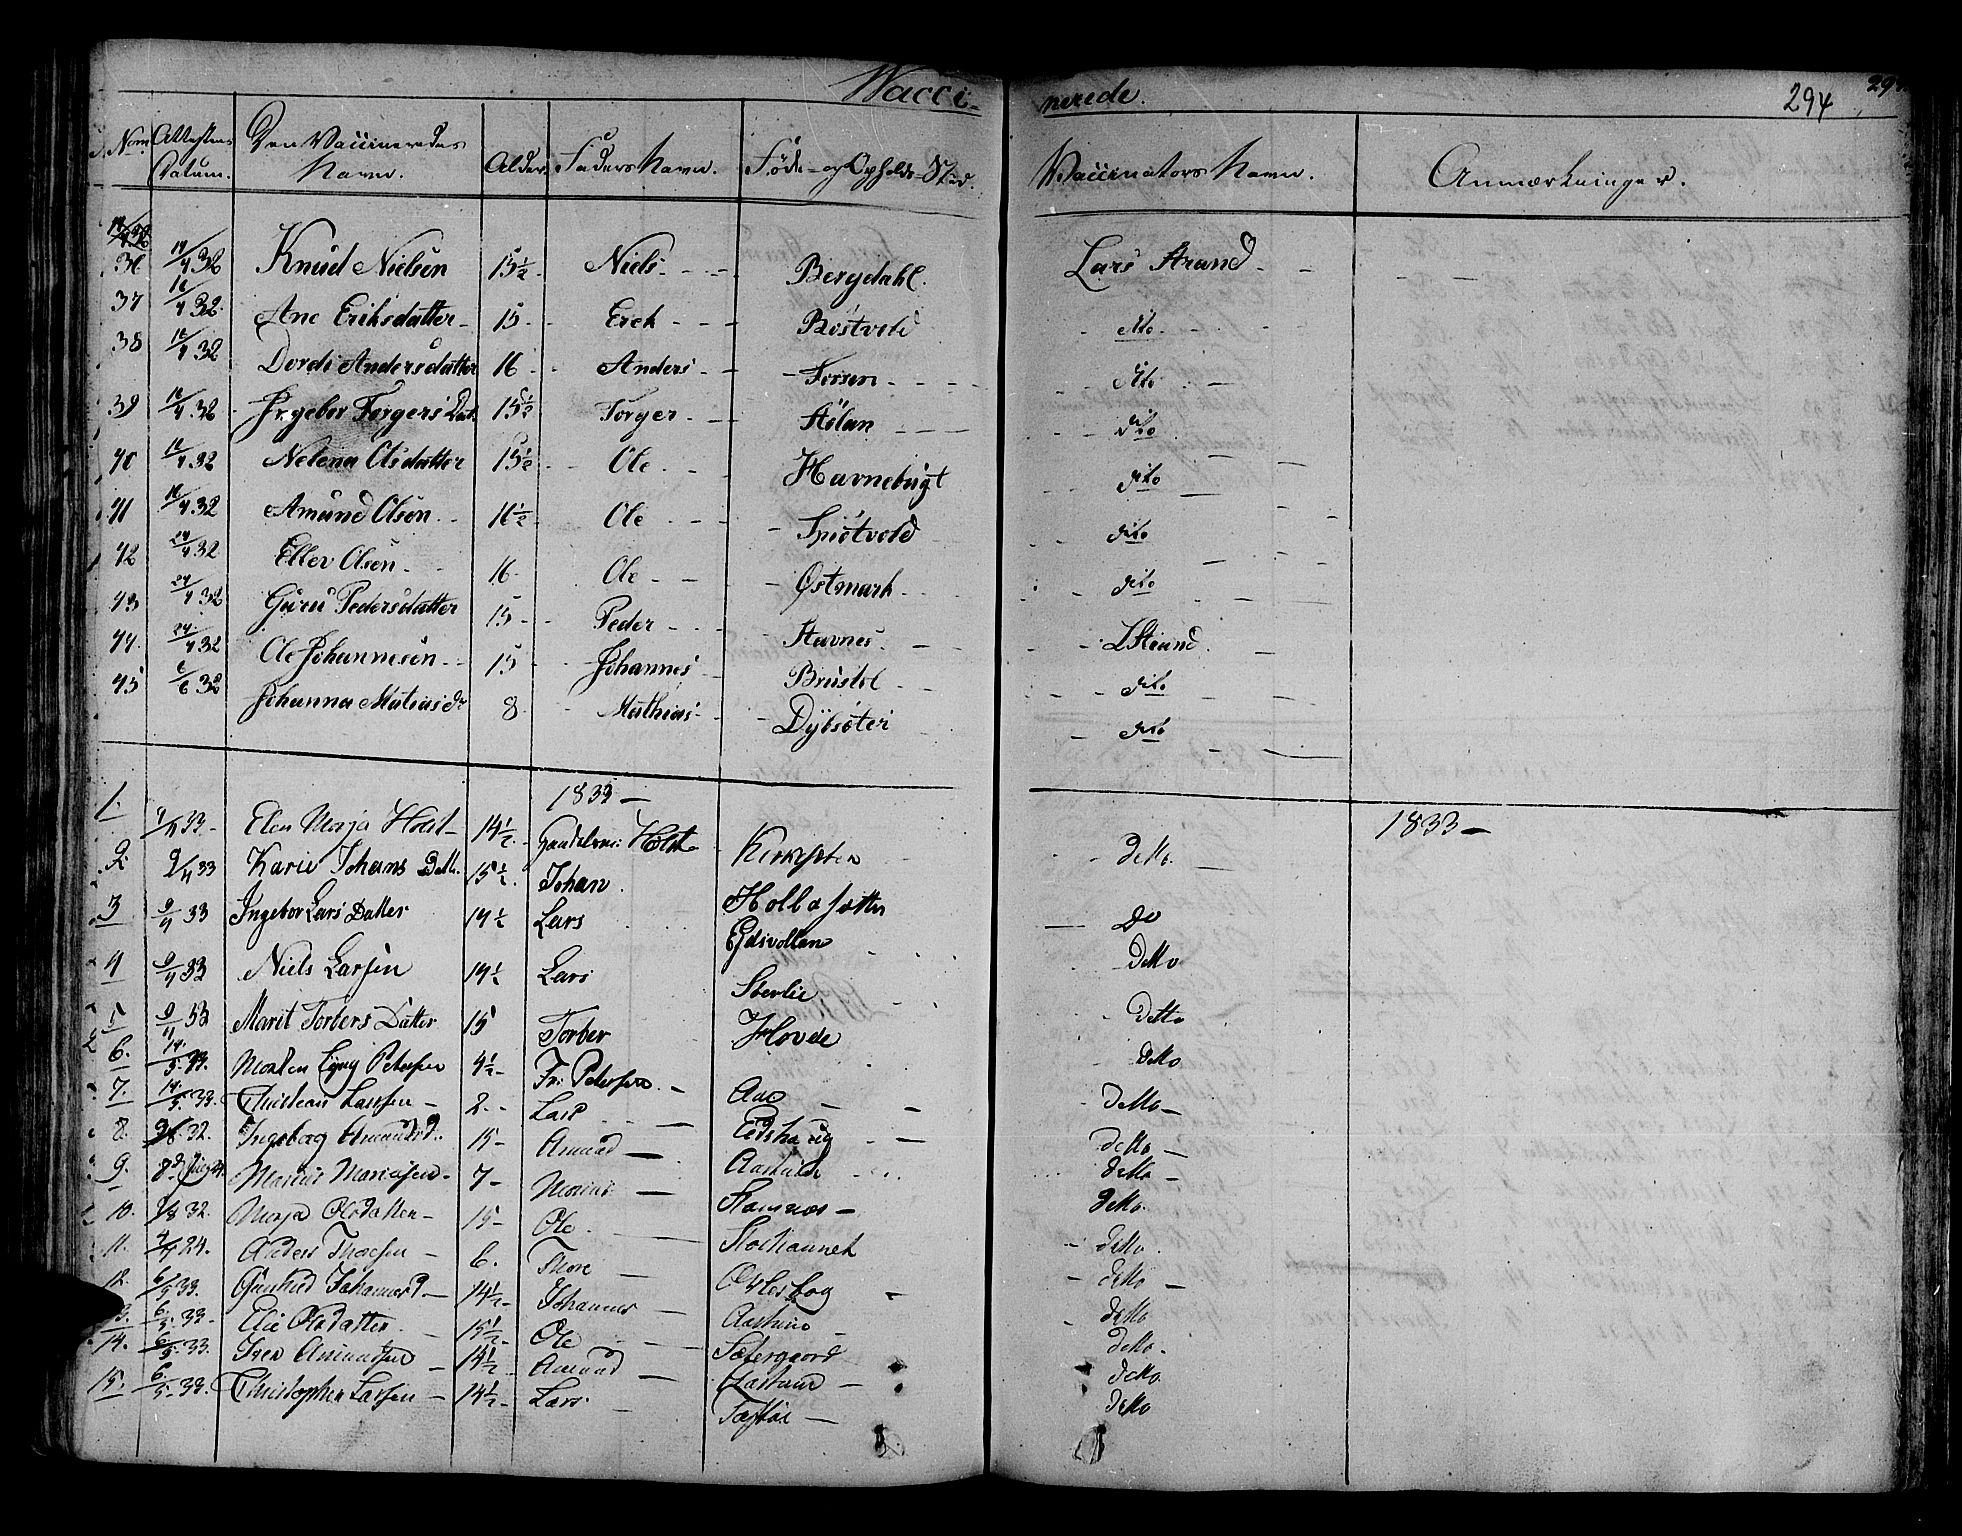 Wacci- nerede.
294
Num Attestens Datum. Den Vaccineredes Navn. Alder Faders Navn. Føde- og Opholds-Sted. Vaccinators Navn. Anmærkninger.
36 14/4 32 Knud Nielsen 15½ Niels Bergdahl. Lars Strand
37 16/4 32 Ane Eriksdatter 15 Erek Røstvold dito
38 16/4 32 Dordi Andersdatter 16 Anders Forsen dito
39 16/4 32 Ingebor Torgers Dat. 15½ Torger Stølan dito
40 16/4 32 Nelena Olsdatter 15½ Ole Havnebugt dito
41 16/4 32 Amund Olsen 16½ Ole Spiøtvold dito
42 24/4 32 Ellev Olsen 16 Ole Østmark dito
43 24/4 32 Guru Pedersdatter 15 Peder Stavnes L Strand
44. 24/4 32 Ole Johannesen 15 Johannes Brustøl dito
45 6/6 32 Johanna Matias dr 8 Mathias Dybsøter dito
1833 — 1833 —
1. 33 Elen Marja Holst 14½ Holst detto
2. 9/4 33 Karie Johans Dettr. 15½ Johan Do
3 9/4 33 Ingebor Lars Datter 14½ Lars Eidsvollan detto
4 9/4 33 Niels Larsen 14½ Lars Storlie detto
5 9/4 33 Marit Torbers Datter 15 Torber Hovde detto
6. 14/5 33. Morten Petersen 4½ Fr: Petersen Aae detto
7. 14/5. 33. Christian Larssen 2 Lars Eidshaug detto
8. 32. Ingeborg Amundsd. 15 Amund detto
9. Marius Mariusen 7 Marius Stamnes detto
10. 32. Marja Olsdatter 15 Ole detto
11. 4/7 24. Anders Thoresen 6. Thore detto
12. 6/5 33. Gunhild Johannesd 14½ Johannes detto
13. 6/5 33. Elie Olsdatter 15½ Ole Sætergaard detto
14. 6/5 33. Iver Amundsen 14½ Amund detto
15. 6/5 33. Christopher Larssen 14½ Lars detto